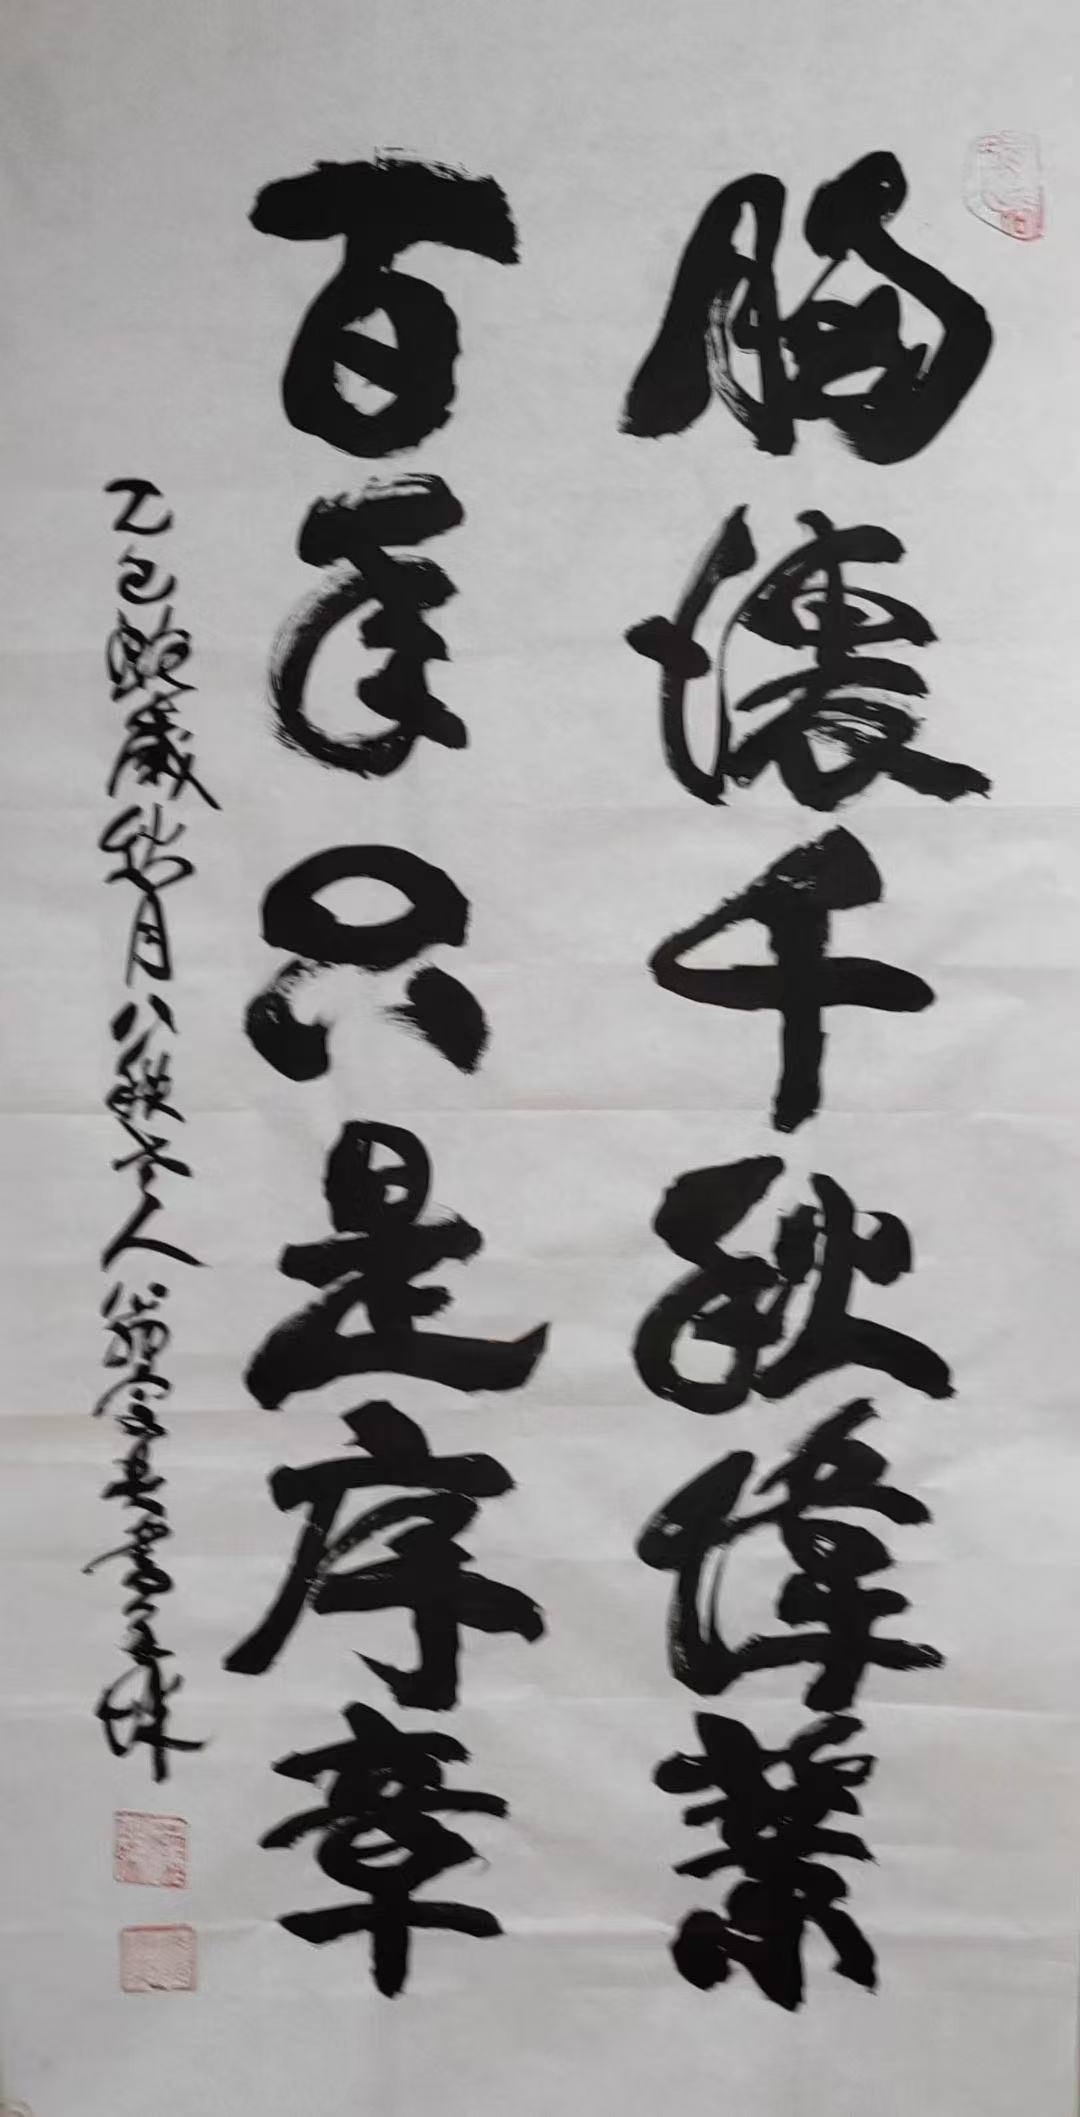 胸懷千秋偉業
百年只是序章
乙巳蛇歲秋月八秩老人翁